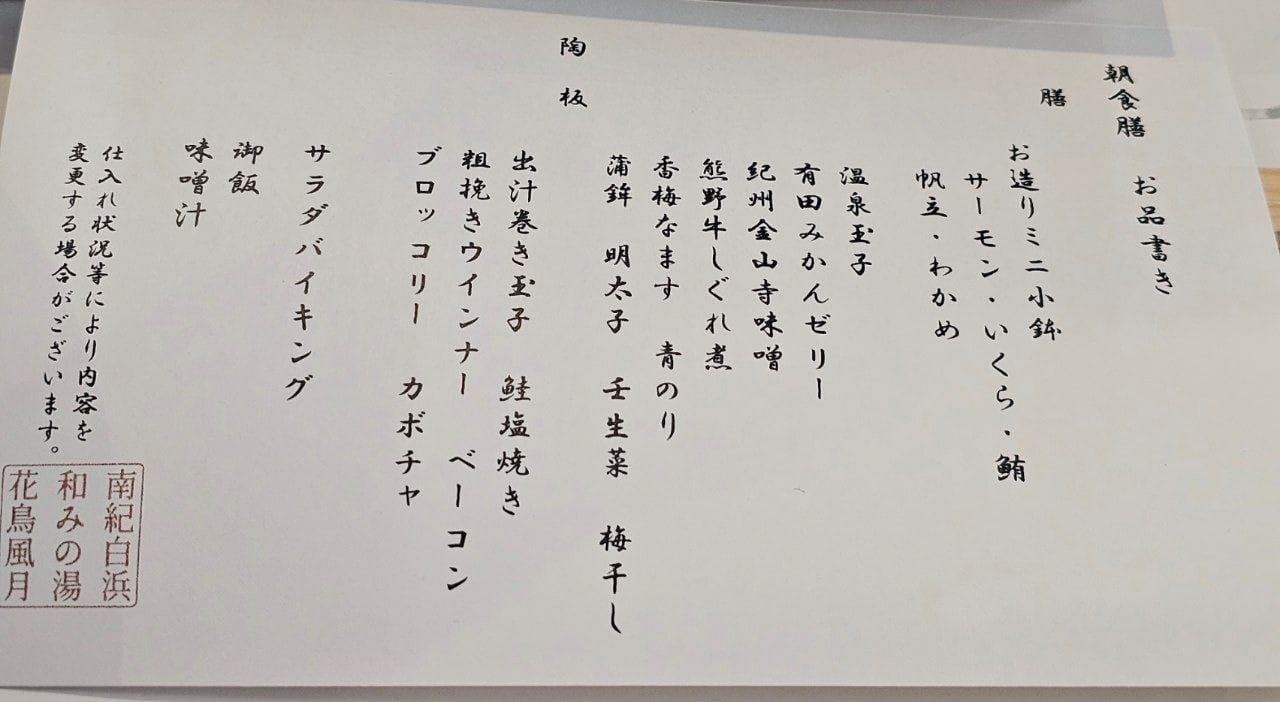 朝食膳　お品書き
膳
お造りミニ小鉢
サーモン・いくら・鮪
帆立・わかめ
温泉玉子
有田みかんゼリー
紀州金山寺味噌
熊野牛しぐれ煮
香梅なます　青のり
蒲鉾　明太子　壬生菜　梅干し
陶板
出汁巻き玉子　鮭塩焼き
粗挽きウインナー　ベーコン
ブロッコリー　カボチャ
サラダバイキング
御飯
味噌汁
仕入れ状況等により内容を
変更する場合がございます。
南紀白浜
和みの湯
花鳥風月